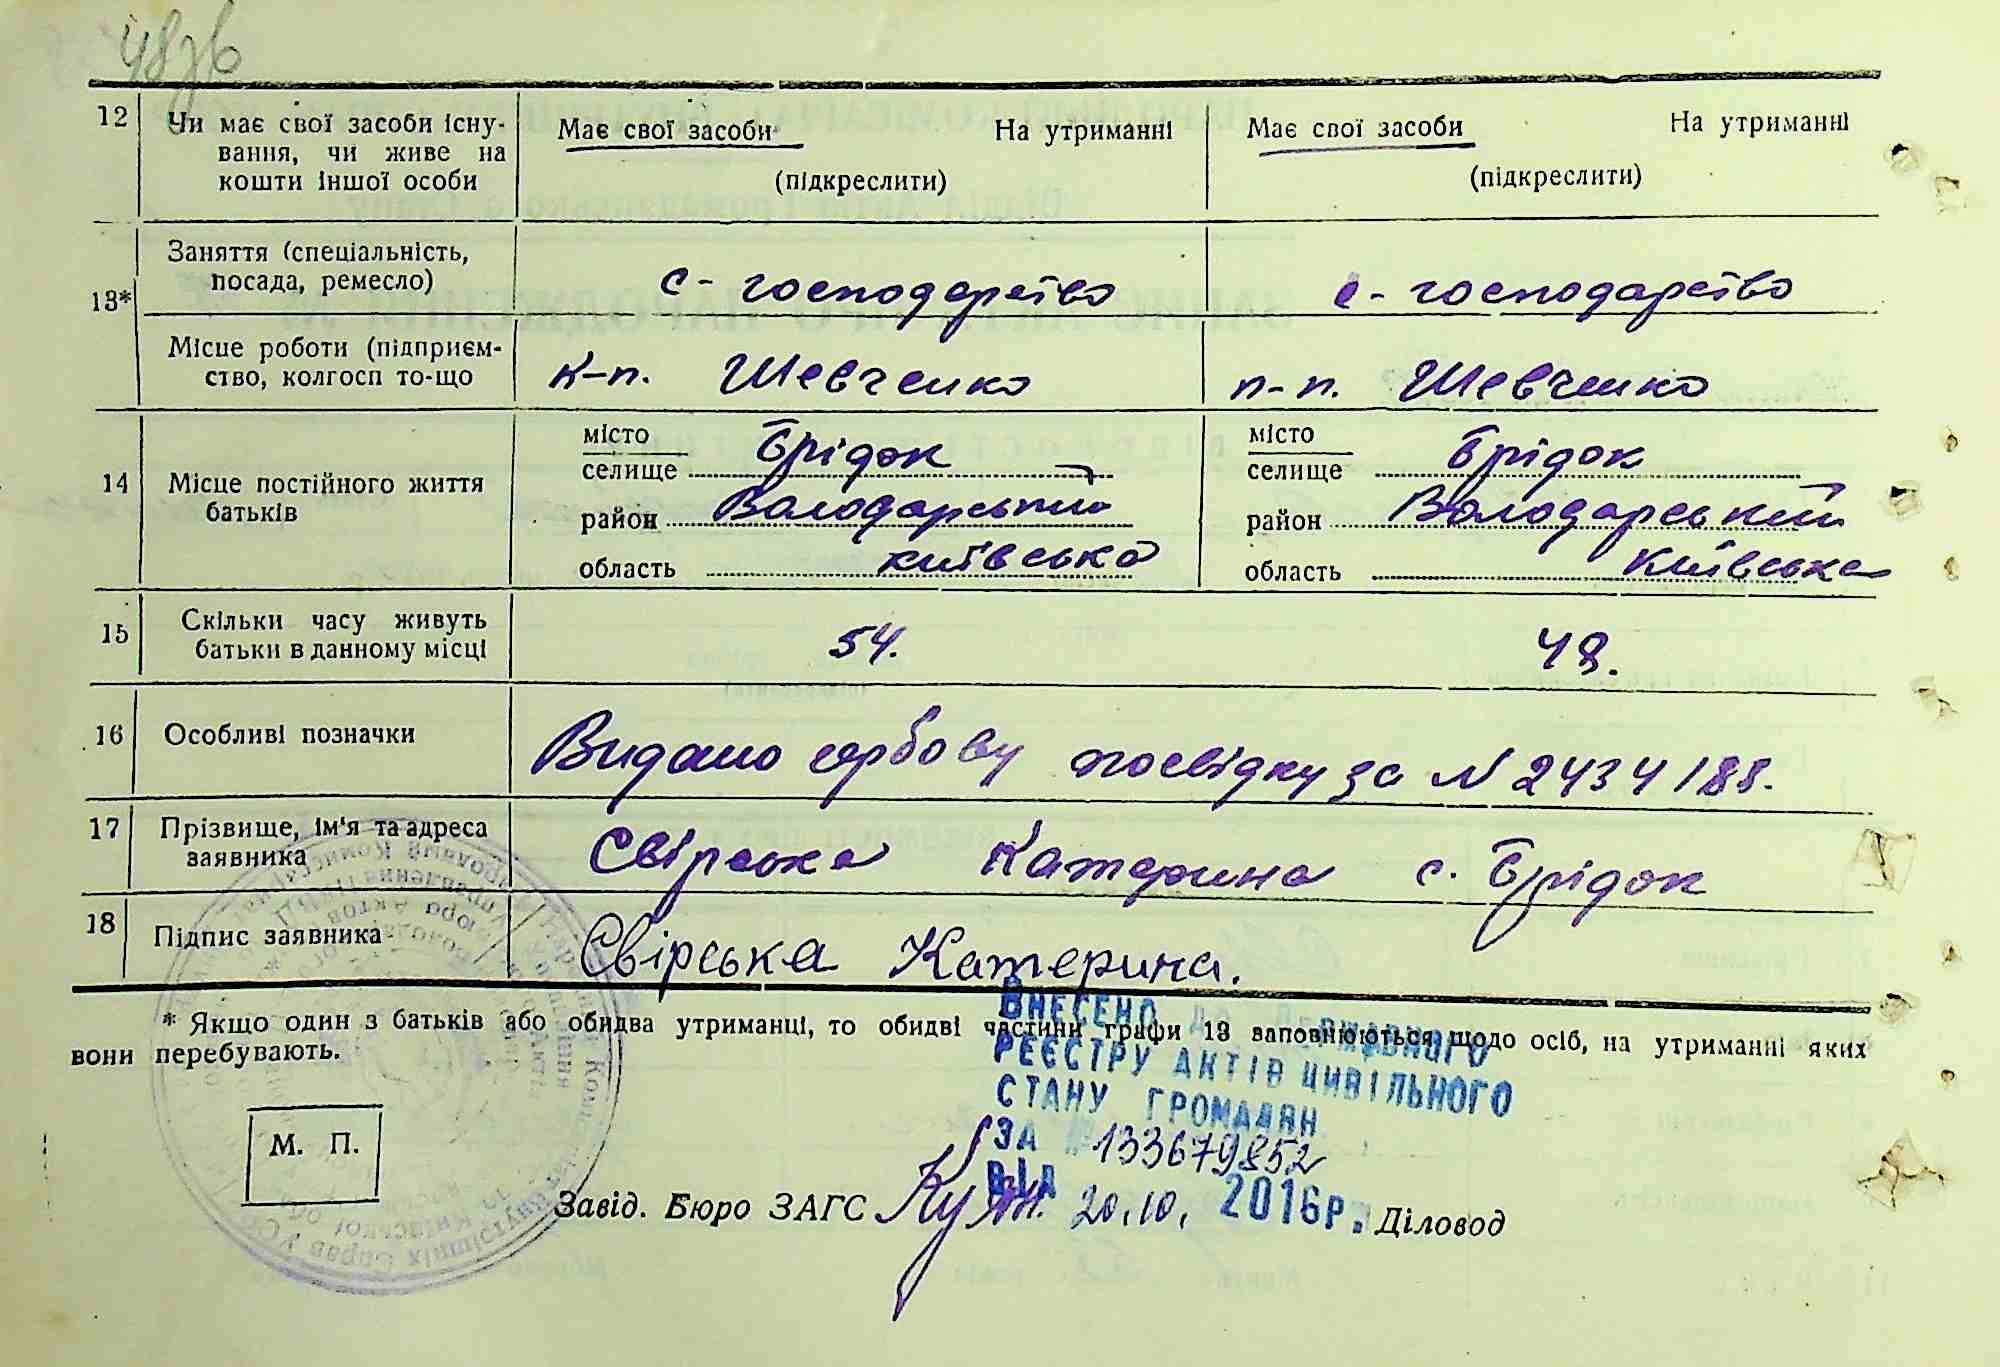 48зв
12 Чи має свої засоби існу-
вання, чи живе на
кошти іншої особи
Має свої засоби На утриманні
(підкреслити)
Має свої засоби На утриманні
(підкреслити)
13* Заняття (спеціальність,
посада, ремесло)
с-господарство
с-господарство
Місце роботи (підприєм-
ство, колгосп то-що
к-п. Шевченко
п-п. Шевченко
14 Місце постійного життя
батьків
місто
селище Брідок
район Володарський
область київська
місто
селище Брідок
район Володарський
область Київська
15 Скільки часу живуть
батьки в данному місці
54.
48.
16 Особливі позначки
Видано гербову посвідку за N 2434188.
17 Прізвище, ім'я та адреса
заявника
Свірська Катерина с. Брідок
18 Підпис заявника
Свірська Катерина.
* Якщо один з батьків або обидва утриманці, то обидві частини графи 13 заповнюються щодо осіб, на утриманні яких
вони перебувають.
ВНЕСЕНО ДО ДЕРЖАВНОГО
РЕЄСТРУ АКТІВ ЦИВІЛЬНОГО
СТАНУ ГРОМАДЯН
ЗА № 133679852
ВІД 20.10. 2016р.
М. П.
Завід. Бюро ЗАГС
Діловод